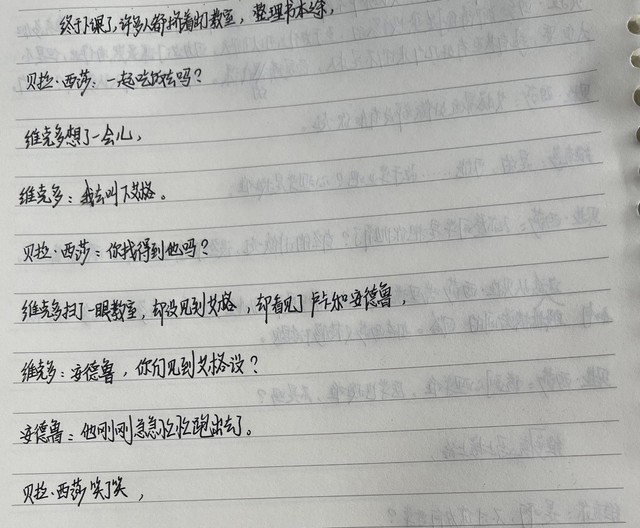 终于下课了,许多人都挤着出门教室,整理书本等,
贝拉·西莎:一起吃饭去吗?
维克多想了一会儿,
维克多:我去叫下艾格。
贝拉·西莎:你找得到他吗?
维克多扫了一眼教室,却没见到艾格,却看见了卢卡尔和安德鲁,
维克多:安德鲁,你们见到艾格没?
安德鲁:他刚刚急急忙忙跑出去了。
贝拉·西莎笑了笑,